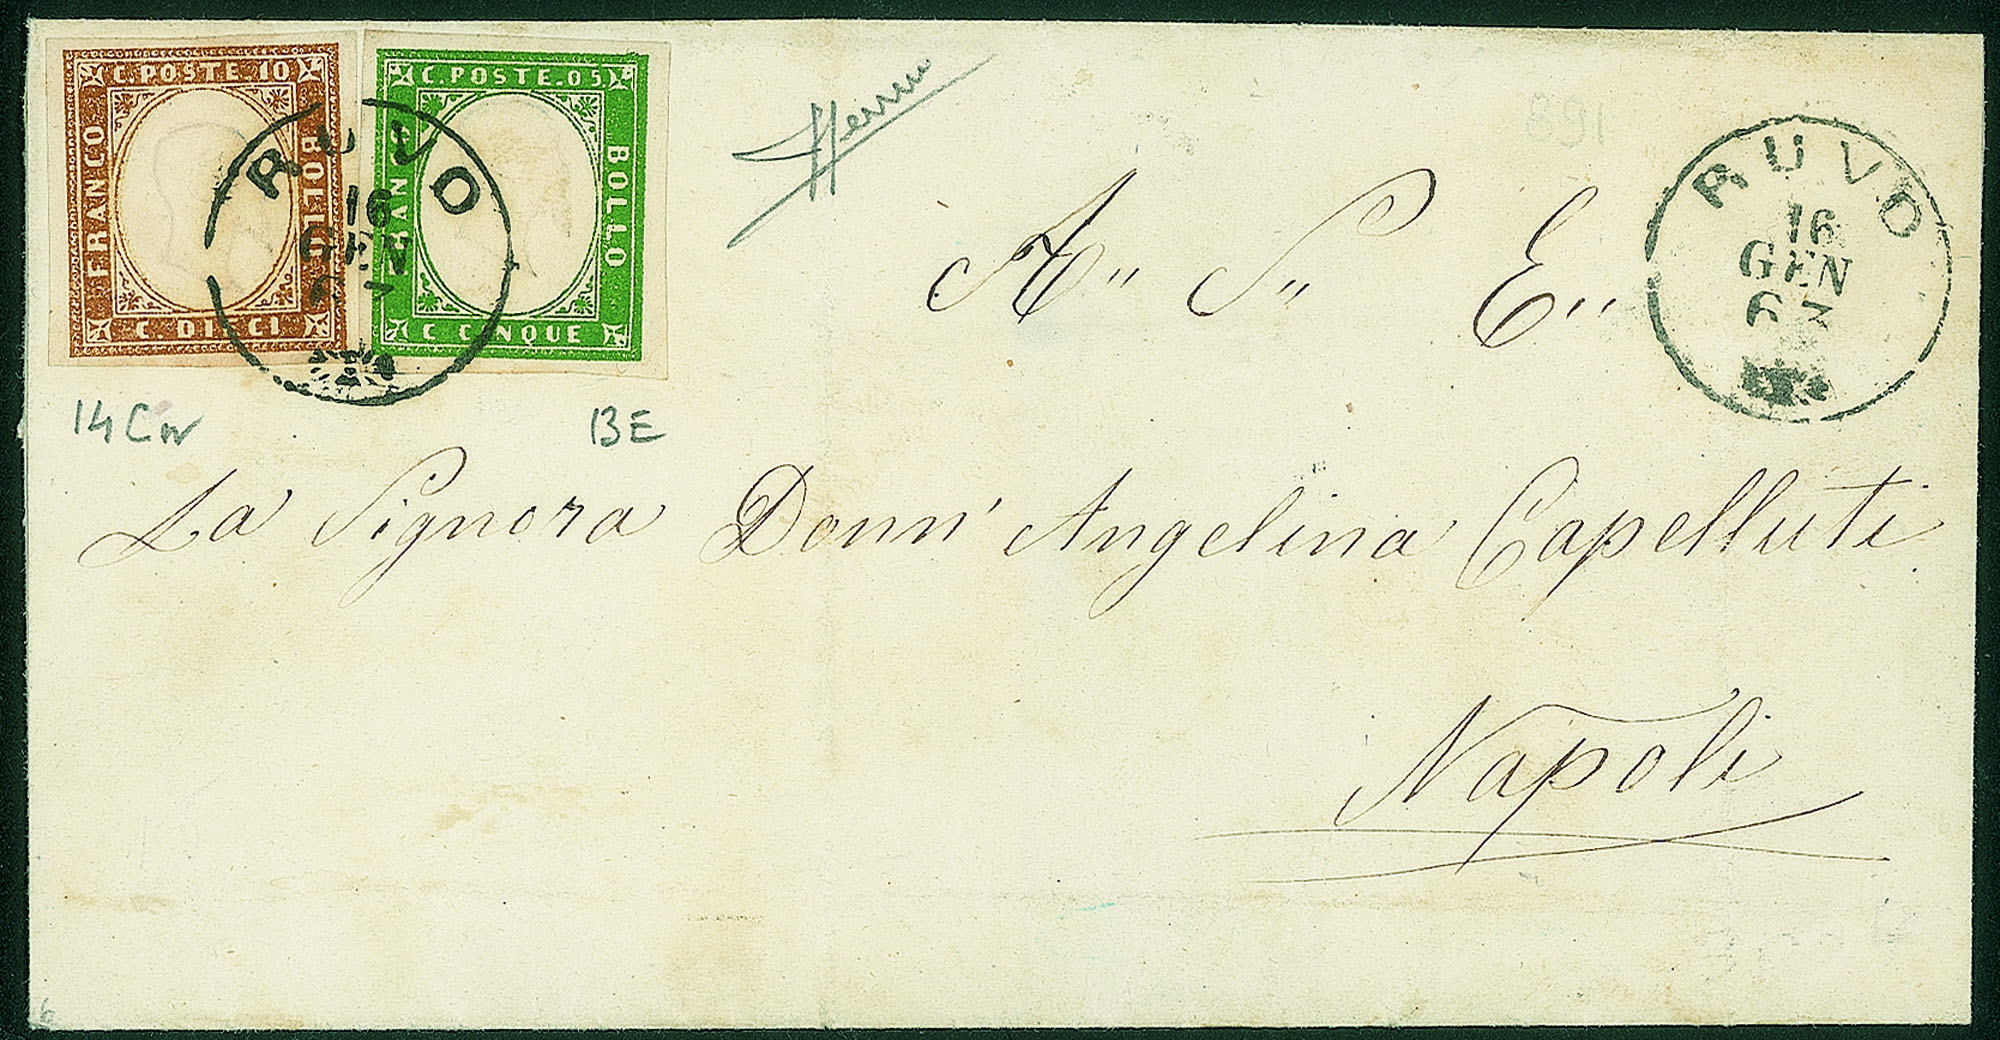 C. POSTE. 10
FRANCO
BOLLO
C. DIECI
C. POSTE. 05
BOLLO
C. CINQUE
RUVO
16
GEN
RUVO
16
GEN
63
14 
13E
A" S" E"
La Signora Donn' Angelina Capelluti
Napoli